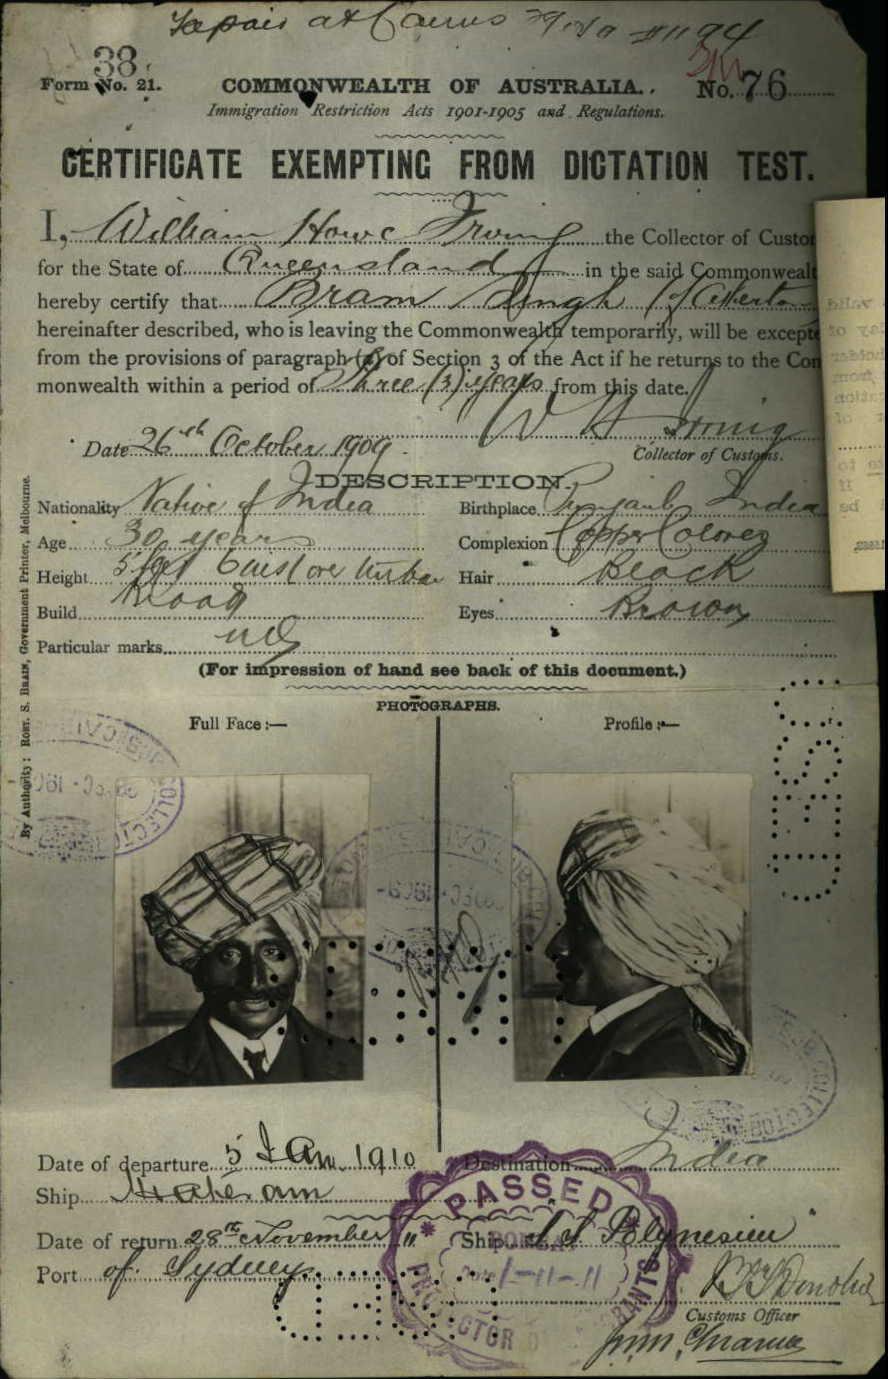 38
Form No. 21.
COMMONWEALTH OF AUSTRALIA.
No. 76
Immigration Restriction Acts 1901-1905 and Regulations.
CERTIFICATE EXEMPTING FROM DICTATION TEST.
I, William Howe Irving the Collector of Custo
for the State of Queensland in the said Commonwealt
hereby certify that Bram Singh (of Atherton
hereinafter described, who is leaving the Commonwealth temporarily, will be excepte
from the provisions of paragraph (a) of Section 3 of the Act if he returns to the Com
monwealth within a period of Three (3) years from this date.
W H Irving
Date 26th October 1909
Collector of Customs.
DESCRIPTION.
Nationality Native of India Birthplace Punjaub India
Age 30 years Complexion Copper Colored
Height 5 feet 6 ins over turban Hair Black
Build Broad Eyes Brown
Particular marks nil
(For impression of hand see back of this document.)
PHOTOGRAPHS.
Full Face:— Profile:—
By Authority: ROBT. S. BRAIN, Government Printer, Melbourne.
Date of departure 5 Jan. 1910 Destination India
Ship
Date of return 28th November 11 Ship S S Polynesien
Port of Sydney
PASSED
1-11-11
PROTECTOR OF EMIGRANTS
Customs Officer